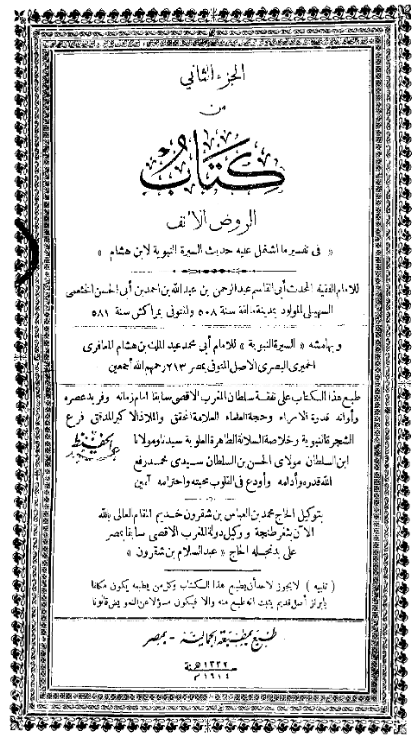 الجزء الثاني
من
كتاب
الروض الأنف
« في تفسير ما اشتمل عليه حديث السيرة النبوية لابن هشام »
للامام الفقيه المحدث أبي القاسم عبد الرحمن بن عبد الله بن احمد بن أبي الحسن الخثعمي
السهيلي المولود بمدينة مالقة سنة ٥٠٨ والمتوفى بمراكش سنة ٥٨١
وبهامشه « السيرة النبوية » للامام أبي محمد عبد الملك بن هشام المعافري
الحميري البصري الاصل المتوفى بمصر ٢١٣ رحمهم الله أجمعين
طبع هذا الكتاب على نفقة سلطان المغرب الاقصى سابقا امام زمانه وفريد عصره
وأوانه قدوة الامراء وحجة العلماء العلامة المحقق والملاذ الاكبر المدقق فرع
الشجرة النبوية وخلاصة السلالة الطاهرة العلوية سيدنا ومولانا عبد الحفيظ
ابن السلطان مولاي الحسن بن السلطان سيدي محمد رفع
الله قدره وأدامه وأودع في القلوب محبته واحترامه آمين
بتوكيل الحاج محمد بن العباس بن شقرون خديم المقام العالي بالله
الآن بثغر طنجة ووكيل دولة المغرب الاقصى سابقا بمصر
على يد نجله الحاج « عبد السلام بن شقرون »
( تنبيه ) لا يجوز لاحد أن يطبع هذا الكتاب وكل من يطبعه يكون مكلفا
بابراز أصل قديم يثبت انه طبع منه والا فيكون مسؤلا عن التعويض قانونا
طبع بمطبعة الجمالية - بمصر
١٣٣٢ هـ سنة
١٩١٤ م